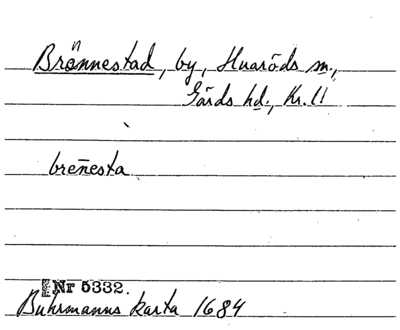 Brönnestad, by, Huaröds sn.,
Gärds hd., Kr. ll
breñesta
Nr 5332.
Buhrmanns karta 1684